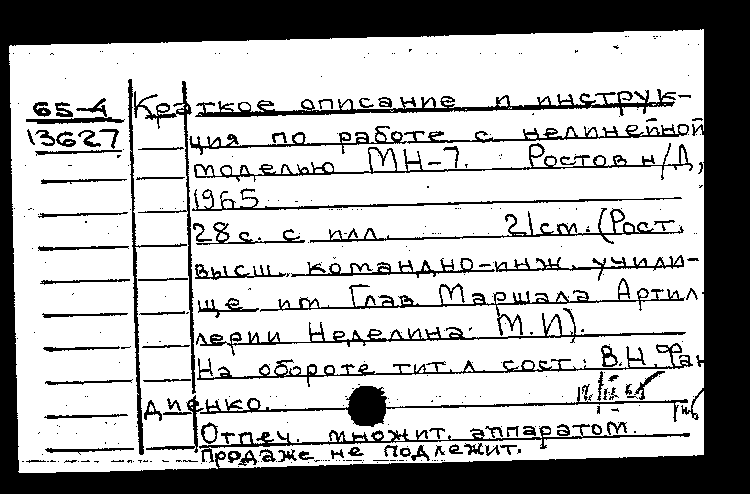 65-4 Краткое описание и инструк-
13627 ция по работе с нелинейной
моделью МН-7. Ростов н/Д,
1965
28 с. с илл. 21 cm. (Рост.
высш. командно-инж. учили-
ще им. Глав. Маршала Артил-
лерии Неделина М.И).
На обороте тит. л. сост.: В.Н. Фан
диенко.
Отпеч. множит. аппаратом.
Продаже не подлежит.